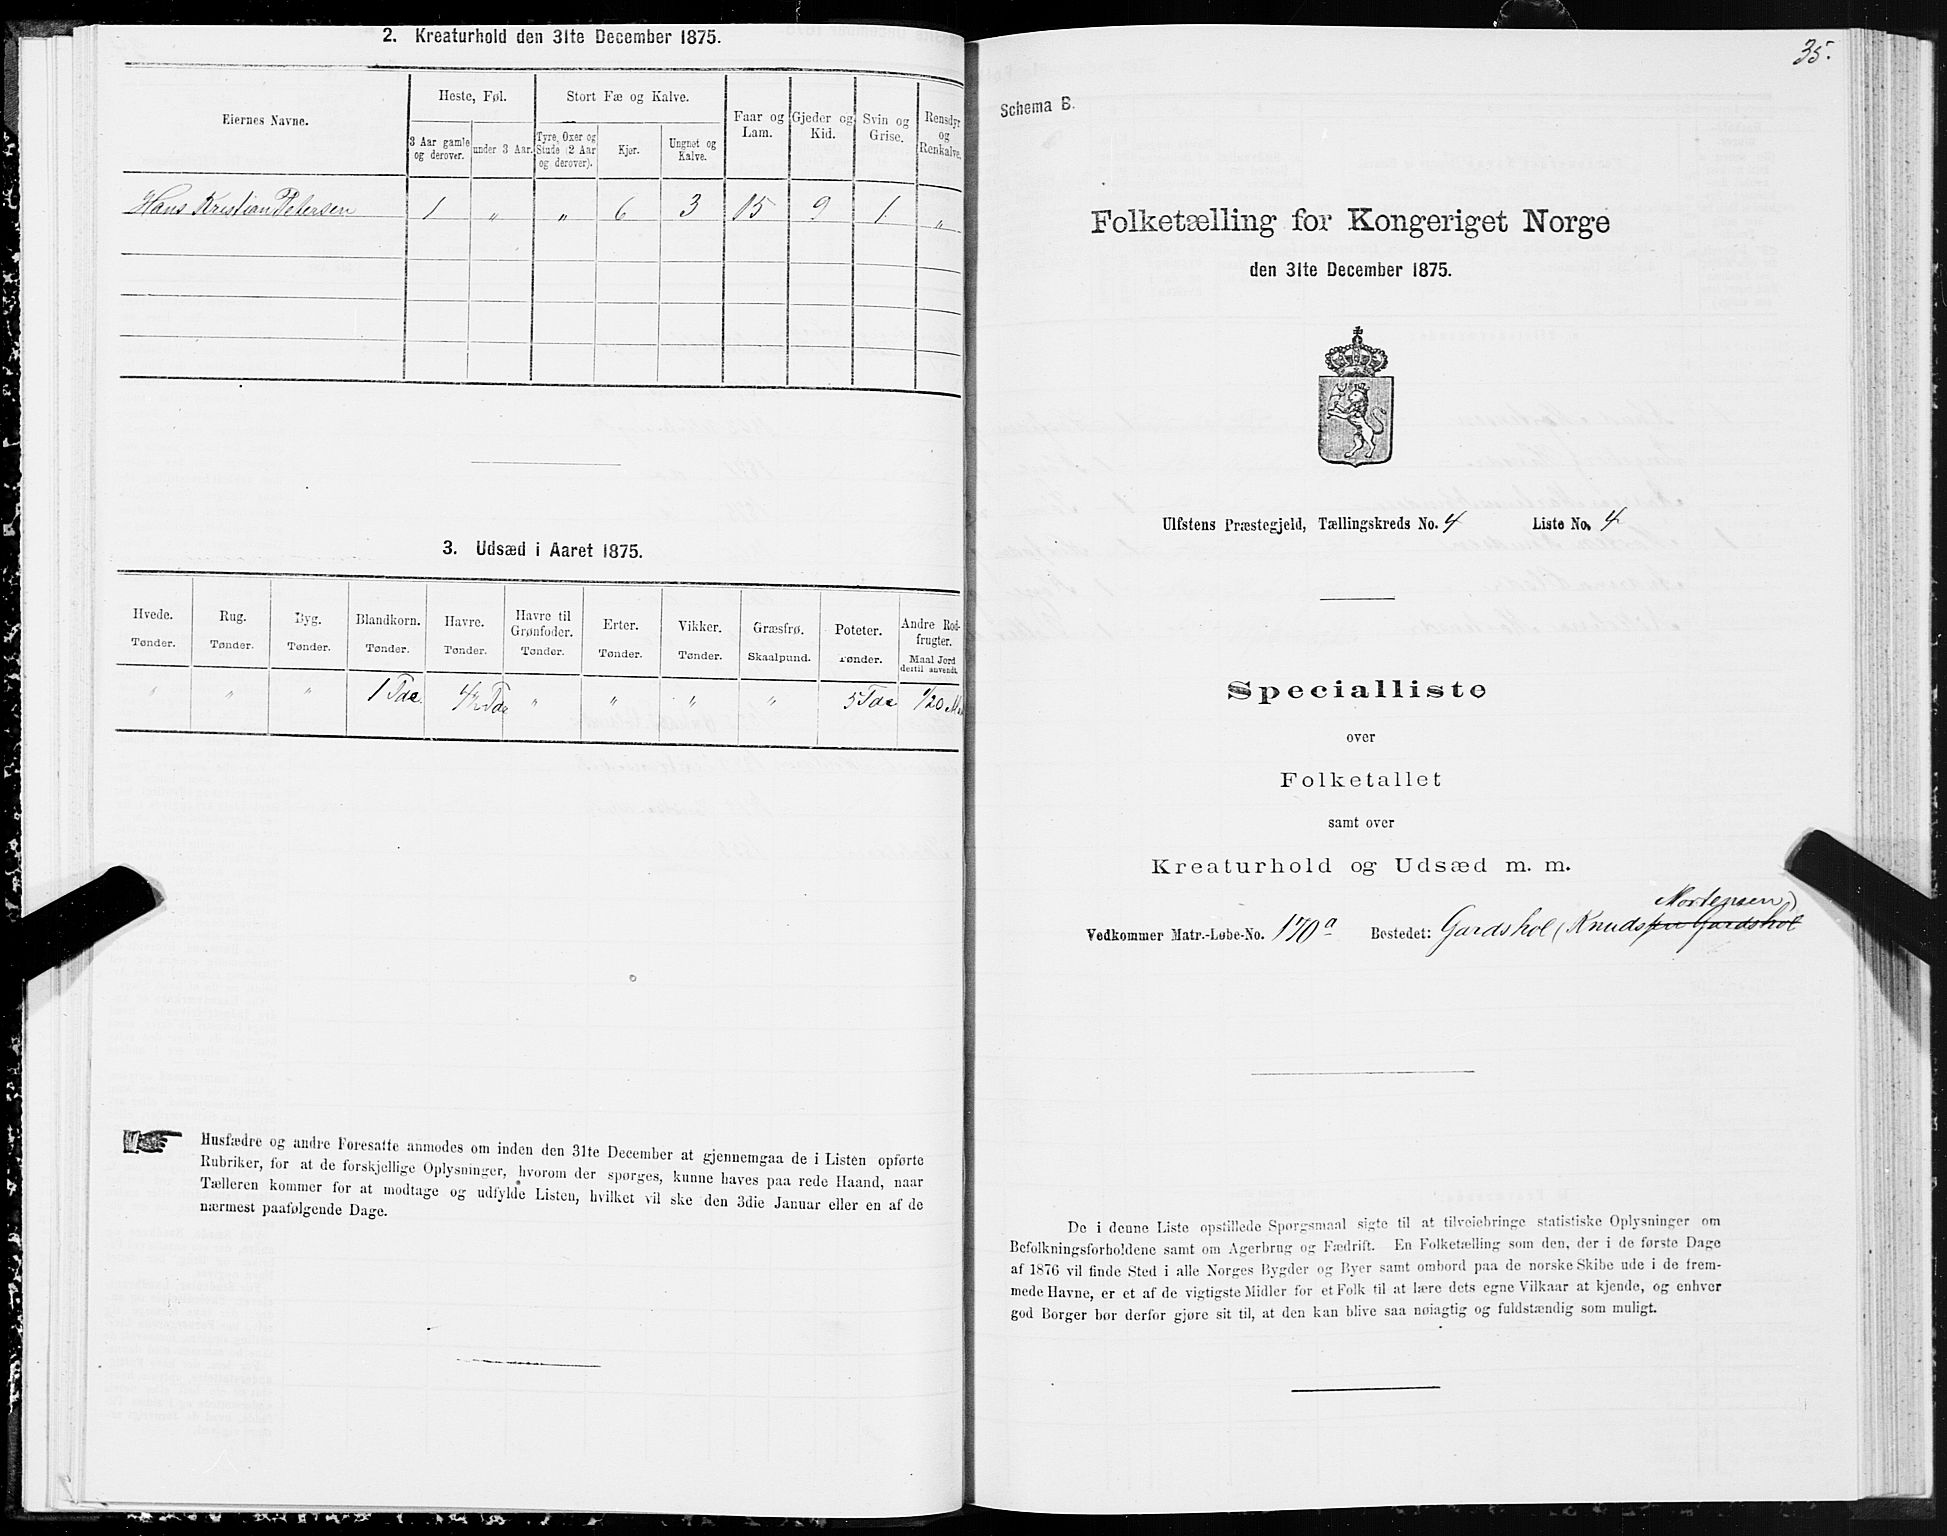 2. Kreaturhold den 31te December 1875.
Eiernes Navne.
Heste, Føl.
Stort Fæ og Kalve.
Faar og Lam.
Gjeder og Kid.
Svin og Grise.
Rensdyr og Renkalve.
3 Aar gamle og derover.
under 3 Aar.
Tyre, Oxer og Stude (2 Aar og derover).
Kjør.
Ungnøt og Kalve.
Hans Kristian Petersen 1 „ „ 6 3 15 9 1 „
3. Udsæd i Aaret 1875.
Hvede. Tønder.
Rug. Tønder.
Byg. Tønder.
Blandkorn. Tønder.
Havre. Tønder.
Havre til Grønfoder. Tønder.
Erter. Tønder.
Vikker. Tønder.
Græsfrø. Skaalpund.
Poteter. Tønder.
Andre Rodfrugter. Maal Jord dertil anvendt.
„ „ „ 1 Tde 4½ Tde „ „ „ „ 5 Tde 1/20 M
Husfædre og andre Foresatte anmodes om inden den 31te December at gjennemgaa de i Listen opførte
Rubriker, for at de forskjellige Oplysninger, hvorom der spørges, kunne haves paa rede Haand, naar
Tælleren kommer for at modtage og udfylde Listen, hvilket vil ske den 3die Januar eller en af de
nærmest paafølgende Dage.
35.
Schema B.
Folketælling for Kongeriget Norge
den 31te December 1875.
Ulfstens Præstegjeld, Tællingskreds No. 4 Liste No. 4
Specialliste
over
Folketallet
samt over
Kreaturhold og Udsæd m. m.
Mortensen)
Vedkommer Matr.-Løbe-No. 170a Bostedet: Gardshol (Knudsen Gardshol
De i denne Liste opstillede Spørgsmaal sigte til at tilveiebringe statistiske Oplysninger om
Befolkningsforholdene samt om Agerbrug og Fædrift. En Folketælling som den, der i de første Dage
af 1876 vil finde Sted i alle Norges Bygder og Byer samt ombord paa de norske Skibe ude i de frem-
mede Havne, er et af de vigtigste Midler for et Folk til at lære dets egne Vilkaar at kjende, og enhver
god Borger bør derfor gjøre sit til, at den kan blive saa nøiagtig og fuldstændig som muligt.